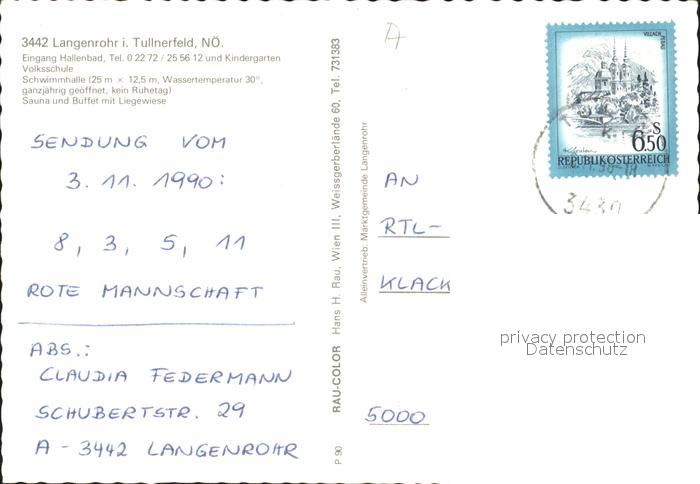 3442 Langenrohr i. Tullnerfeld, NÖ.
Eingang Hallenbad, Tel. 0 22 72 / 25 56 12 und Kindergarten
Volksschule
Schwimmhalle (25 m × 12,5 m, Wassertemperatur 30°,
ganzjährig geöffnet, kein Ruhetag)
Sauna und Buffet mit Liegewiese
SENDUNG VOM
3. 11. 1990:
8, 3, 5, 11
ROTE MANNSCHAFT
ABS.:
CLAUDIA FEDERMANN
SCHUBERTSTR. 29
A - 3442 LANGENROHR
P 90
RAU-COLOR Hans H. Rau, Wien III, Weissgerberlände 60, Tel. 731383
Alleinvertrieb: Marktgemeinde Langenrohr
A
AN
RTL-
KLACK
5000
VILLACH
PERAU
S
6.50
REPUBLIK ÖSTERREICH
3430
privacy protection
Datenschutz